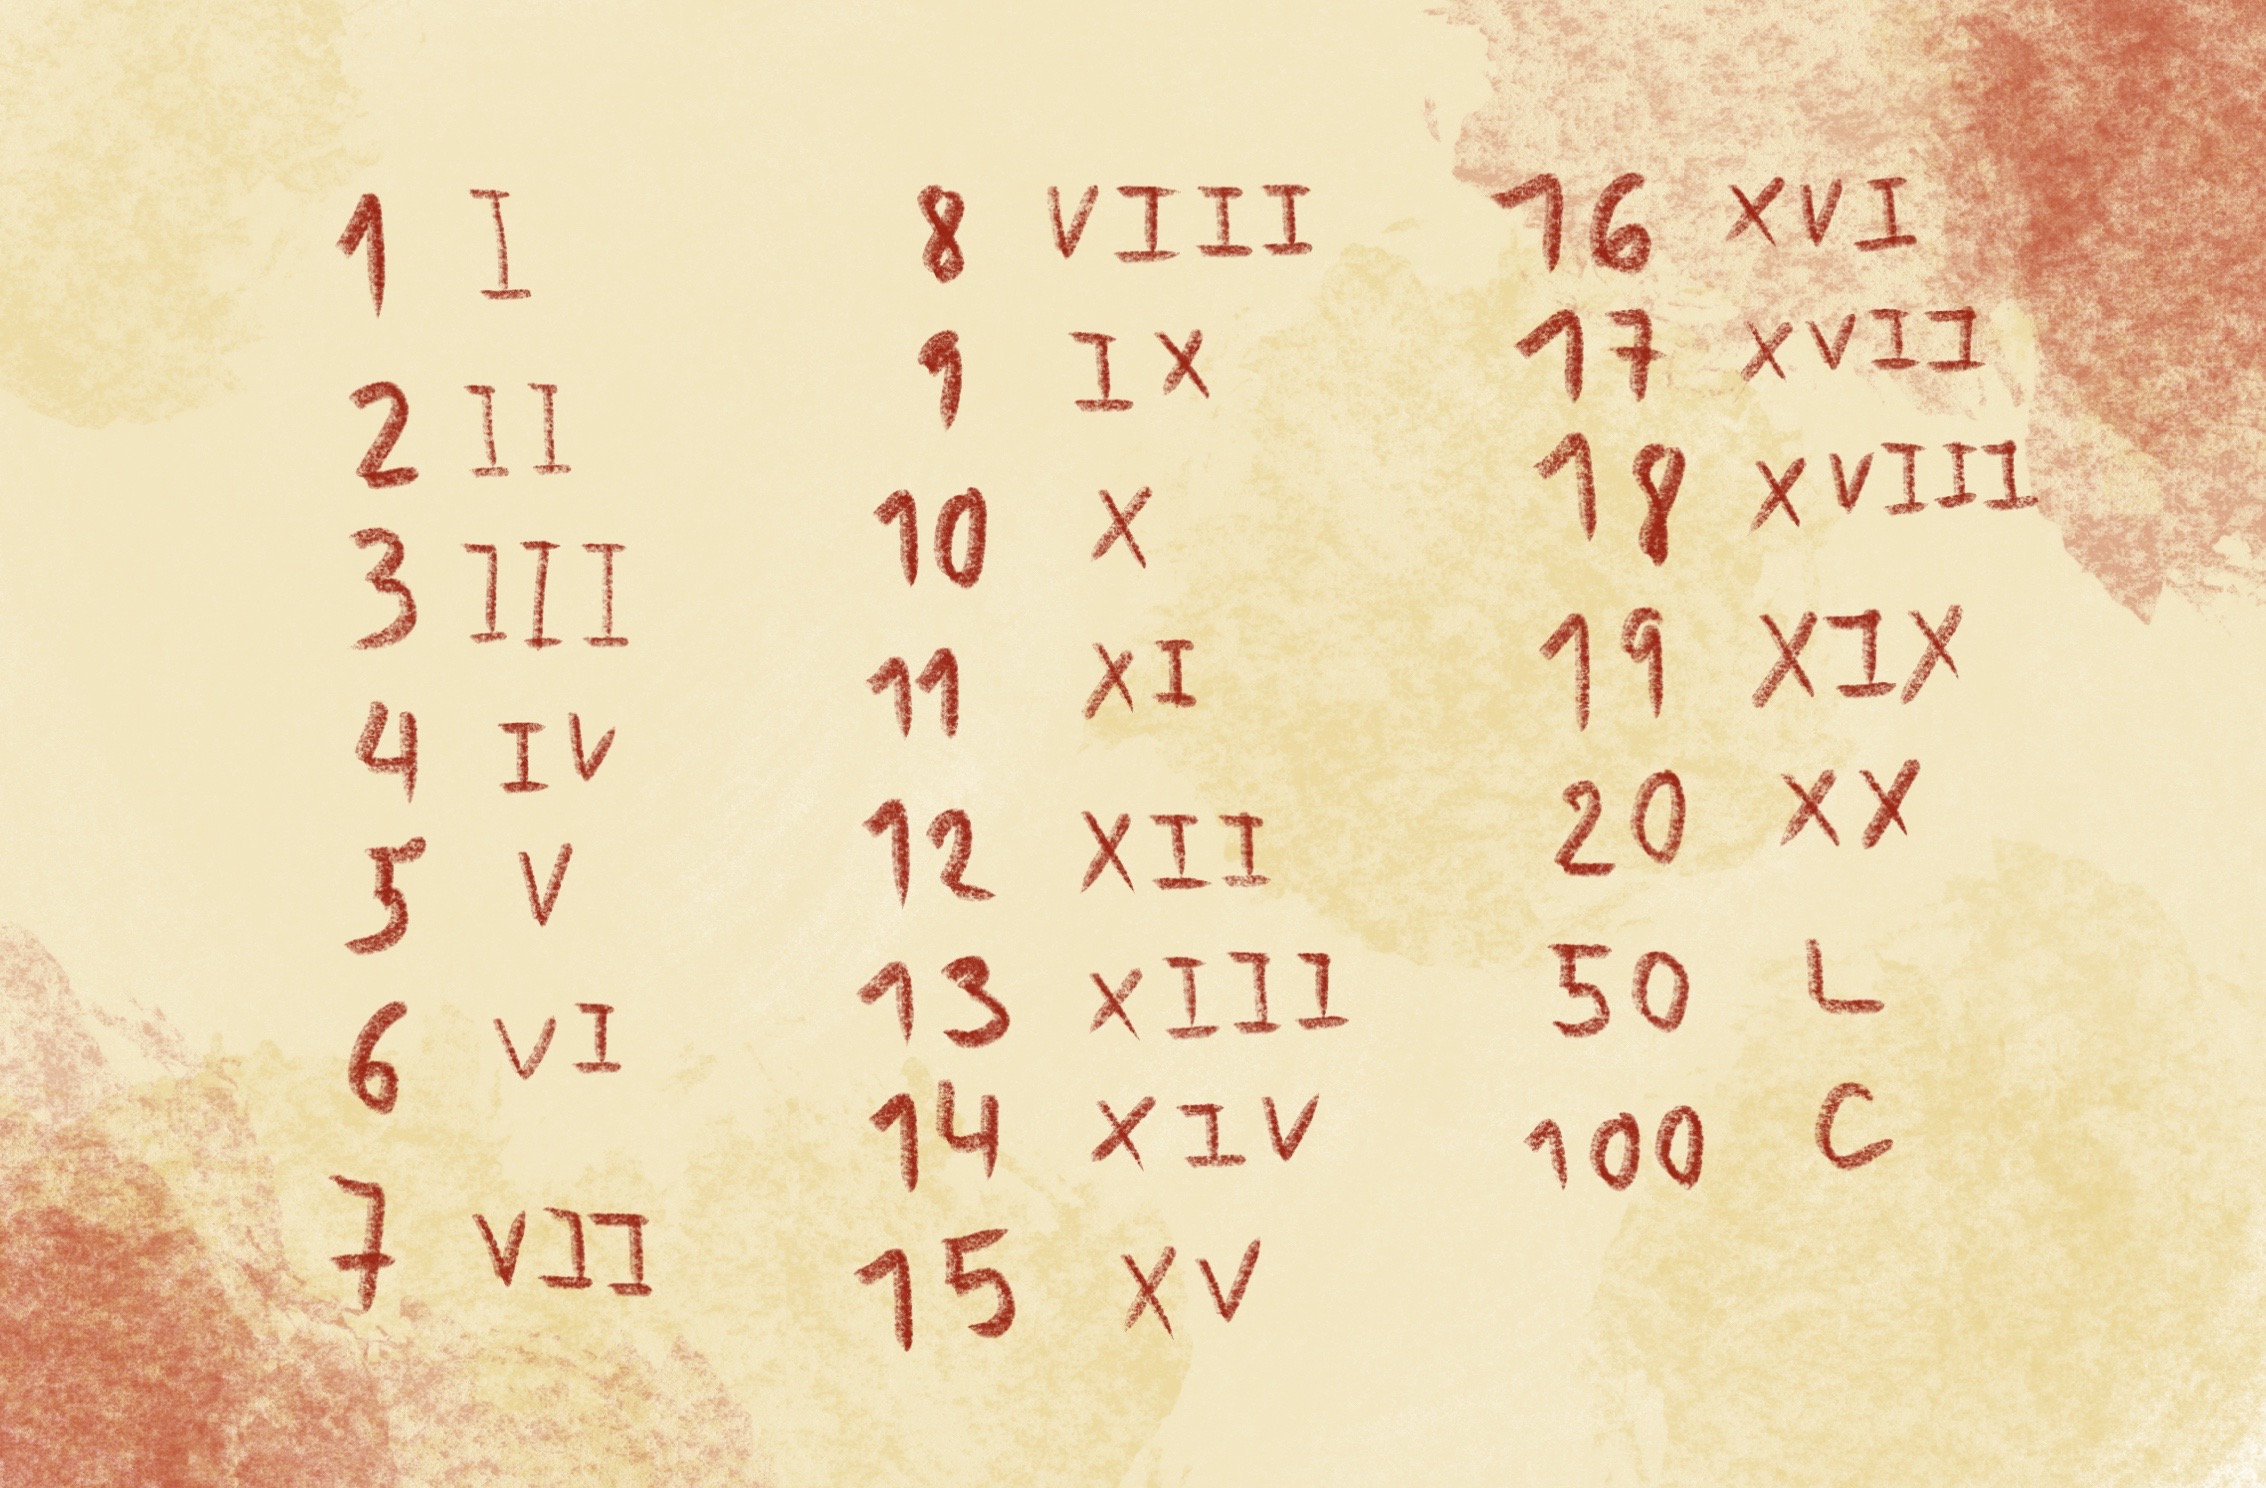 1 I
2 II
3 III
4 IV
5 V
6 VI
7 VII
8 VIII
9 IX
10 X
11 XI
12 XII
13 XIII
14 XIV
15 XV
16 XVI
17 XVII
18 XVIII
19 XIX
20 XX
50 L
100 C